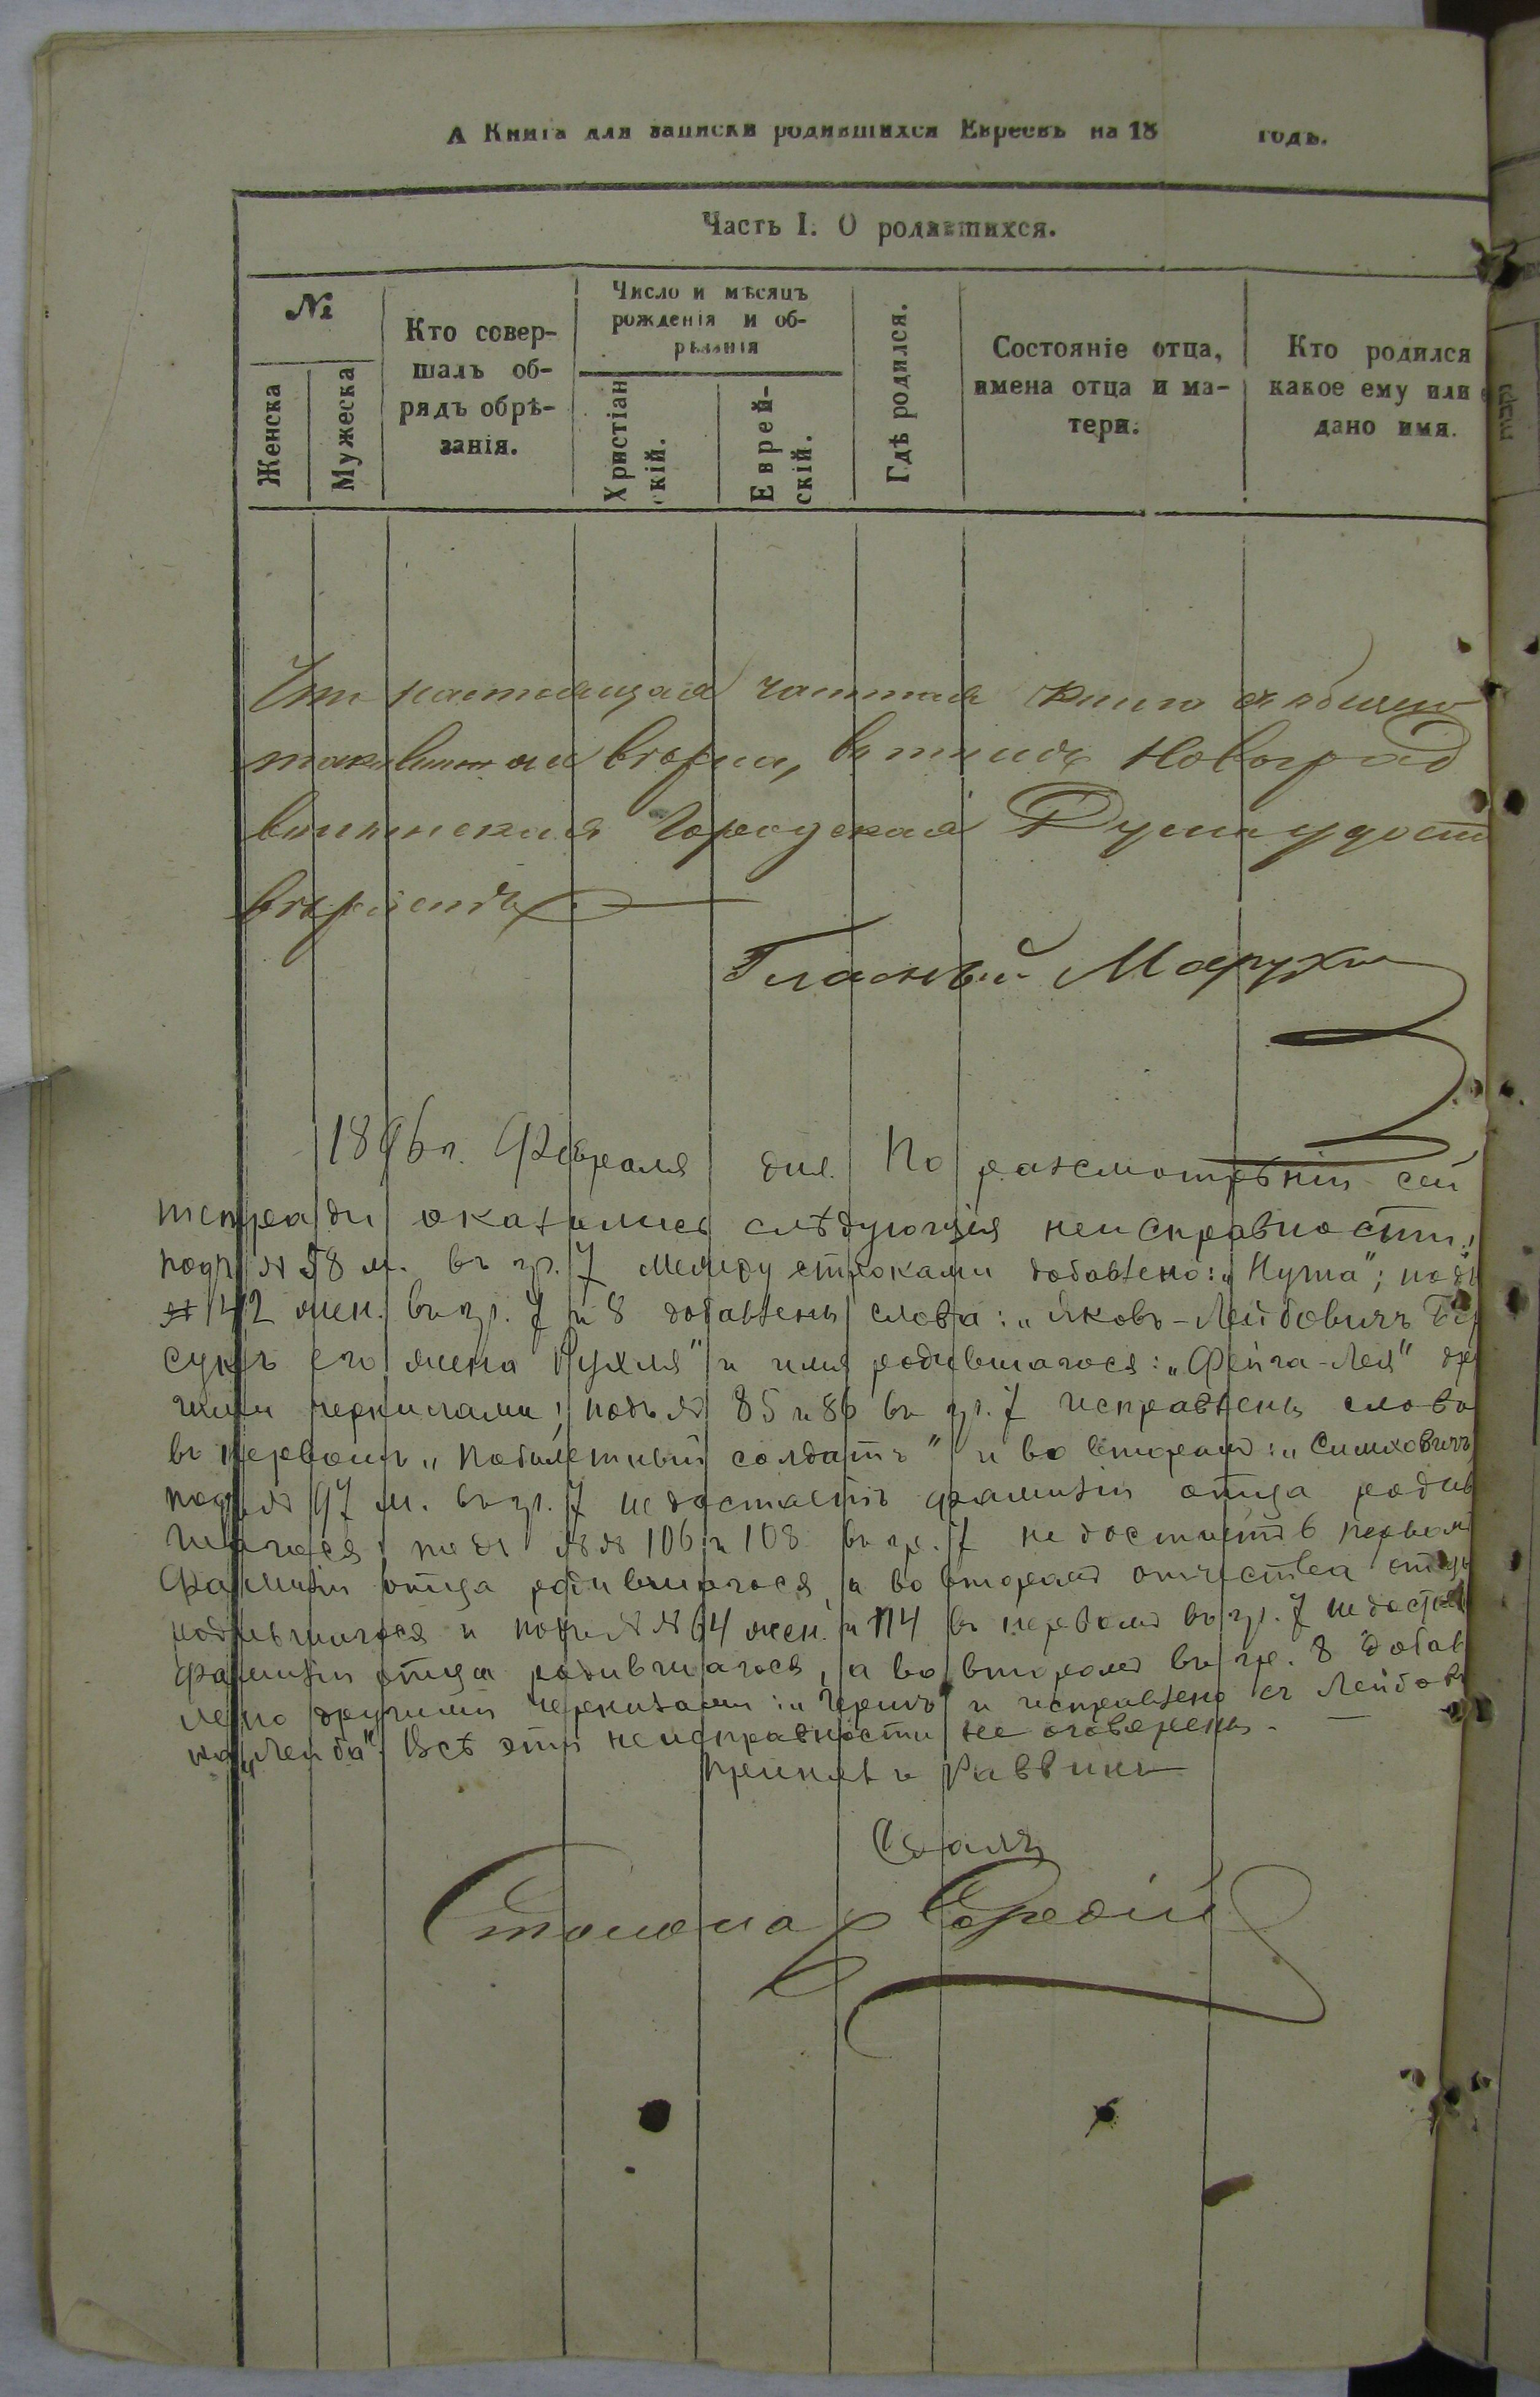 А Книга для записки родившихся Евреевъ на 18 годъ.
Часть I. О родившихся.
№
Женска
Мужеска
Кто совер-
шалъ об-
рядъ обрѣ-
занія.
Число и мѣсяцъ
рожденія и об-
рѣзанія
Христіан
скій.
Еврей-
скій.
Гдѣ родился.
Состояніе отца,
имена отца и ма-
тери.
Кто родился
какое ему или
дано имя.
Что настоящая частная книга
вѣрна, въ томъ Новоград
волынская Городская Дума удосто
вѣряетъ
Гласный Марухи
1896 г. Февраля дня. По разсмотрѣніи сей
тетради оказались слѣдующія неисправности:
подъ № 58 м. въ гр. 7 между строками добавлено: „Нута"; подъ
№ 42 жен. въ гр. 7 и 8 добавлены слова: „Яковъ-Лейбовичъ Бар
сукъ его жена Рухля" и имя родившагося: „Фейга-Лея" дру
гими чернилами; подъ № 85 и 86 въ гр. 7 исправлены слова
въ первомъ „побилетный солдатъ" и во второмъ: „Симховичъ
подъ № 97 м. въ гр. 7 недостаетъ фамиліи отца родив
шагося; подъ №№ 106 и 108 въ гр. 7 недостаетъ въ первомъ
фамиліи отца родившагося, а во второмъ отчества отца
родившагося и подъ №№ 64 жен. и 114 въ первомъ въ гр. 7 недостаетъ
фамиліи отца родившагося, а во второмъ въ гр. 8 добав
лено другими чернилами: „Гершъ" и исправлено съ Лейбовъ
на „Лейба". Всѣ эти неисправности не оговорены. —
Принялъ Раввинъ
Сдалъ
Столонач